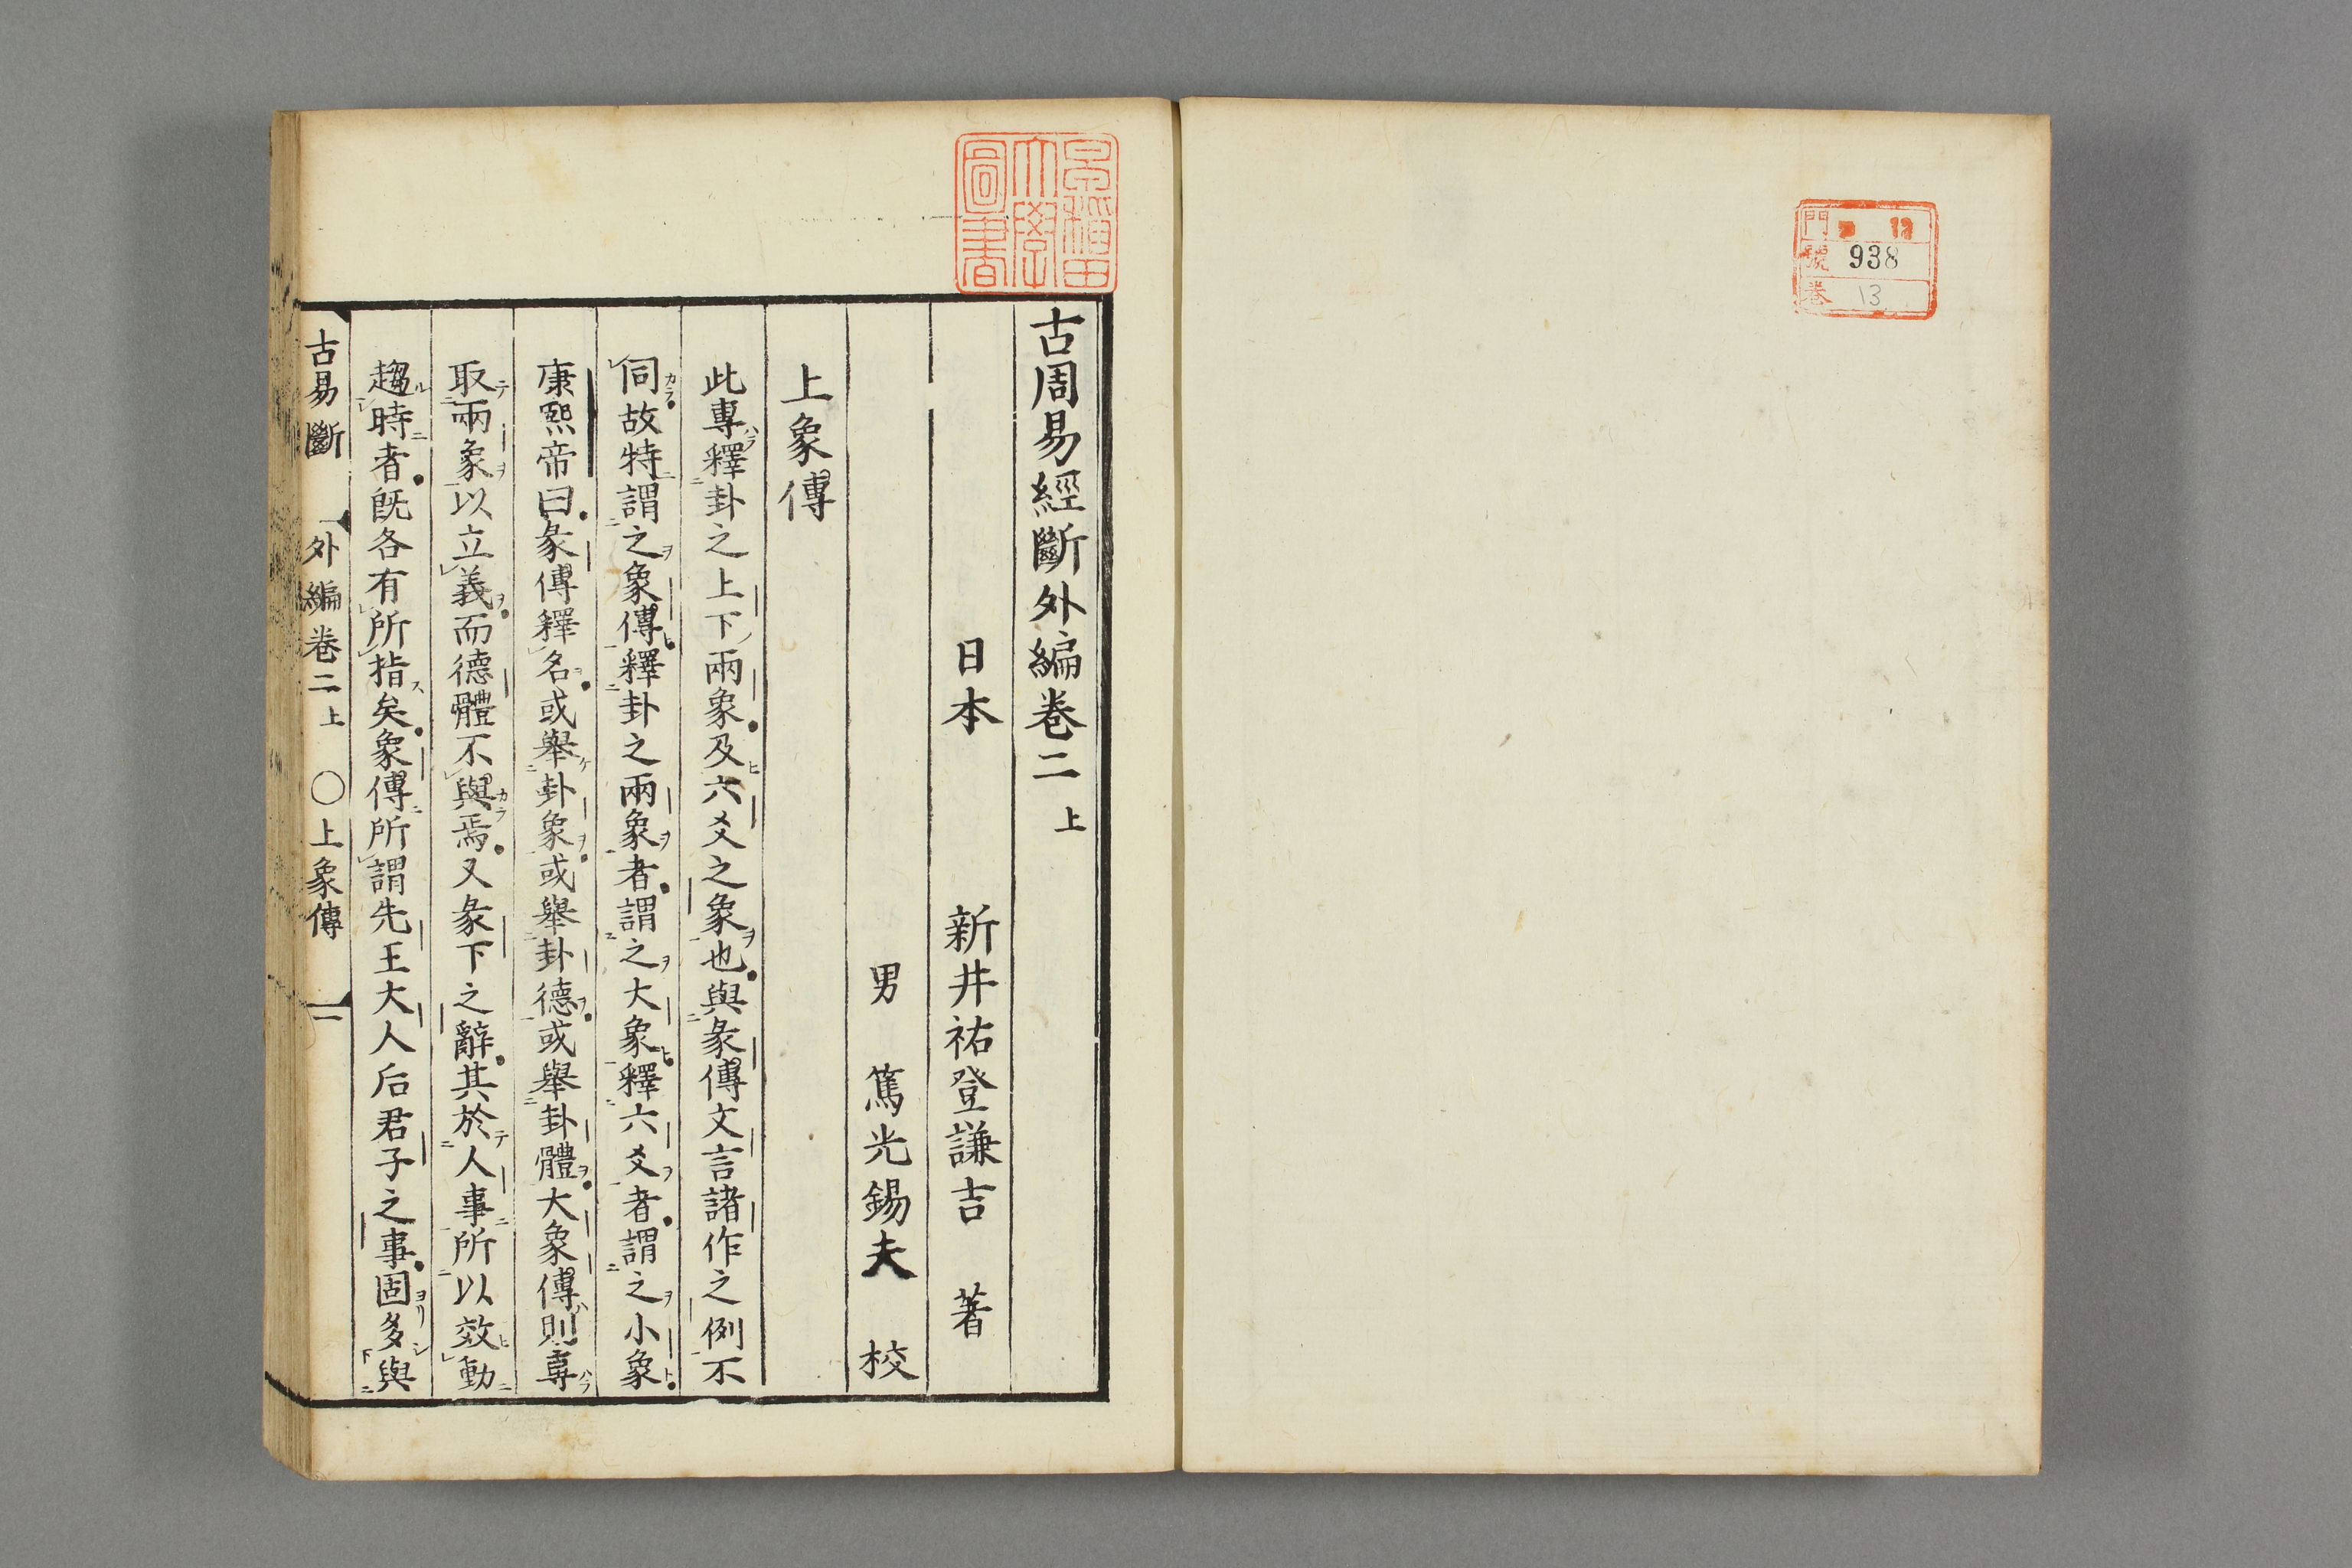 門
號 938
巻 13
早稲田大學圖書
古周易經斷外編卷二 上
日本 新井祐登謙吉 著
男 篤光錫夫 校
上象傳
此專釋卦之上下兩象及六爻之象也與彖傳文言諸作之例不
同故特謂之象傳釋卦之兩象者謂之大象釋六爻者謂之小象
康熙帝曰彖傳釋名或舉卦象或舉卦德或舉卦體大象傳則專
取兩象以立義而德體不與焉又彖下之辭其於人事所以效動
趨時者旣各有所指矣象傳所謂先王大人后君子之事固多與
古易斷 外編卷二上 ○上象傳 一